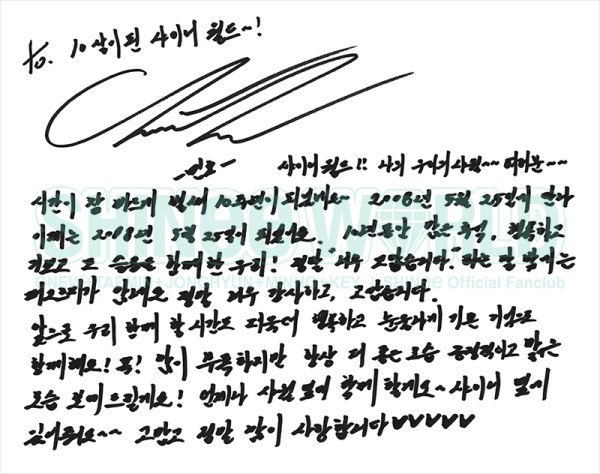 To. 10살이 된 샤이니 월드~!
-민호-
샤이니 월드!! 나의 우리의 샤월~~ 여러분~~
시간이 참 빠르게 벌써 10주년이 되었네요~ 2008년 5월 25일이
이제는 2018년 5월 25일이 되었어요. 10년동안 많은 추억, 행복하고
기쁘고 또 슬픔을 함께한 우리! 정말 "너무 고맙습니다." 라는 말 밖에는
떠오르지가 않네요 정말 너무 감사하고, 고맙습니다.
앞으로 우리 함께 할 시간도 더욱더 행복하고 눈부시게 기쁜
함께해요! 꼭! 많이 부족하지만 항상 더 좋은 모습 긍정적이고 밝은
모습 보여드릴게요! 언제나 샤월 옆에 함께 할게요~ 샤이니 옆에
있어줘요~~ 고맙고 정말 많이 사랑합니다♥♥♥♥♥
SHINee WORLD
ONEW+TAEMIN+JONGHYUN+MINHO+KEY SHINee Official Fanclub